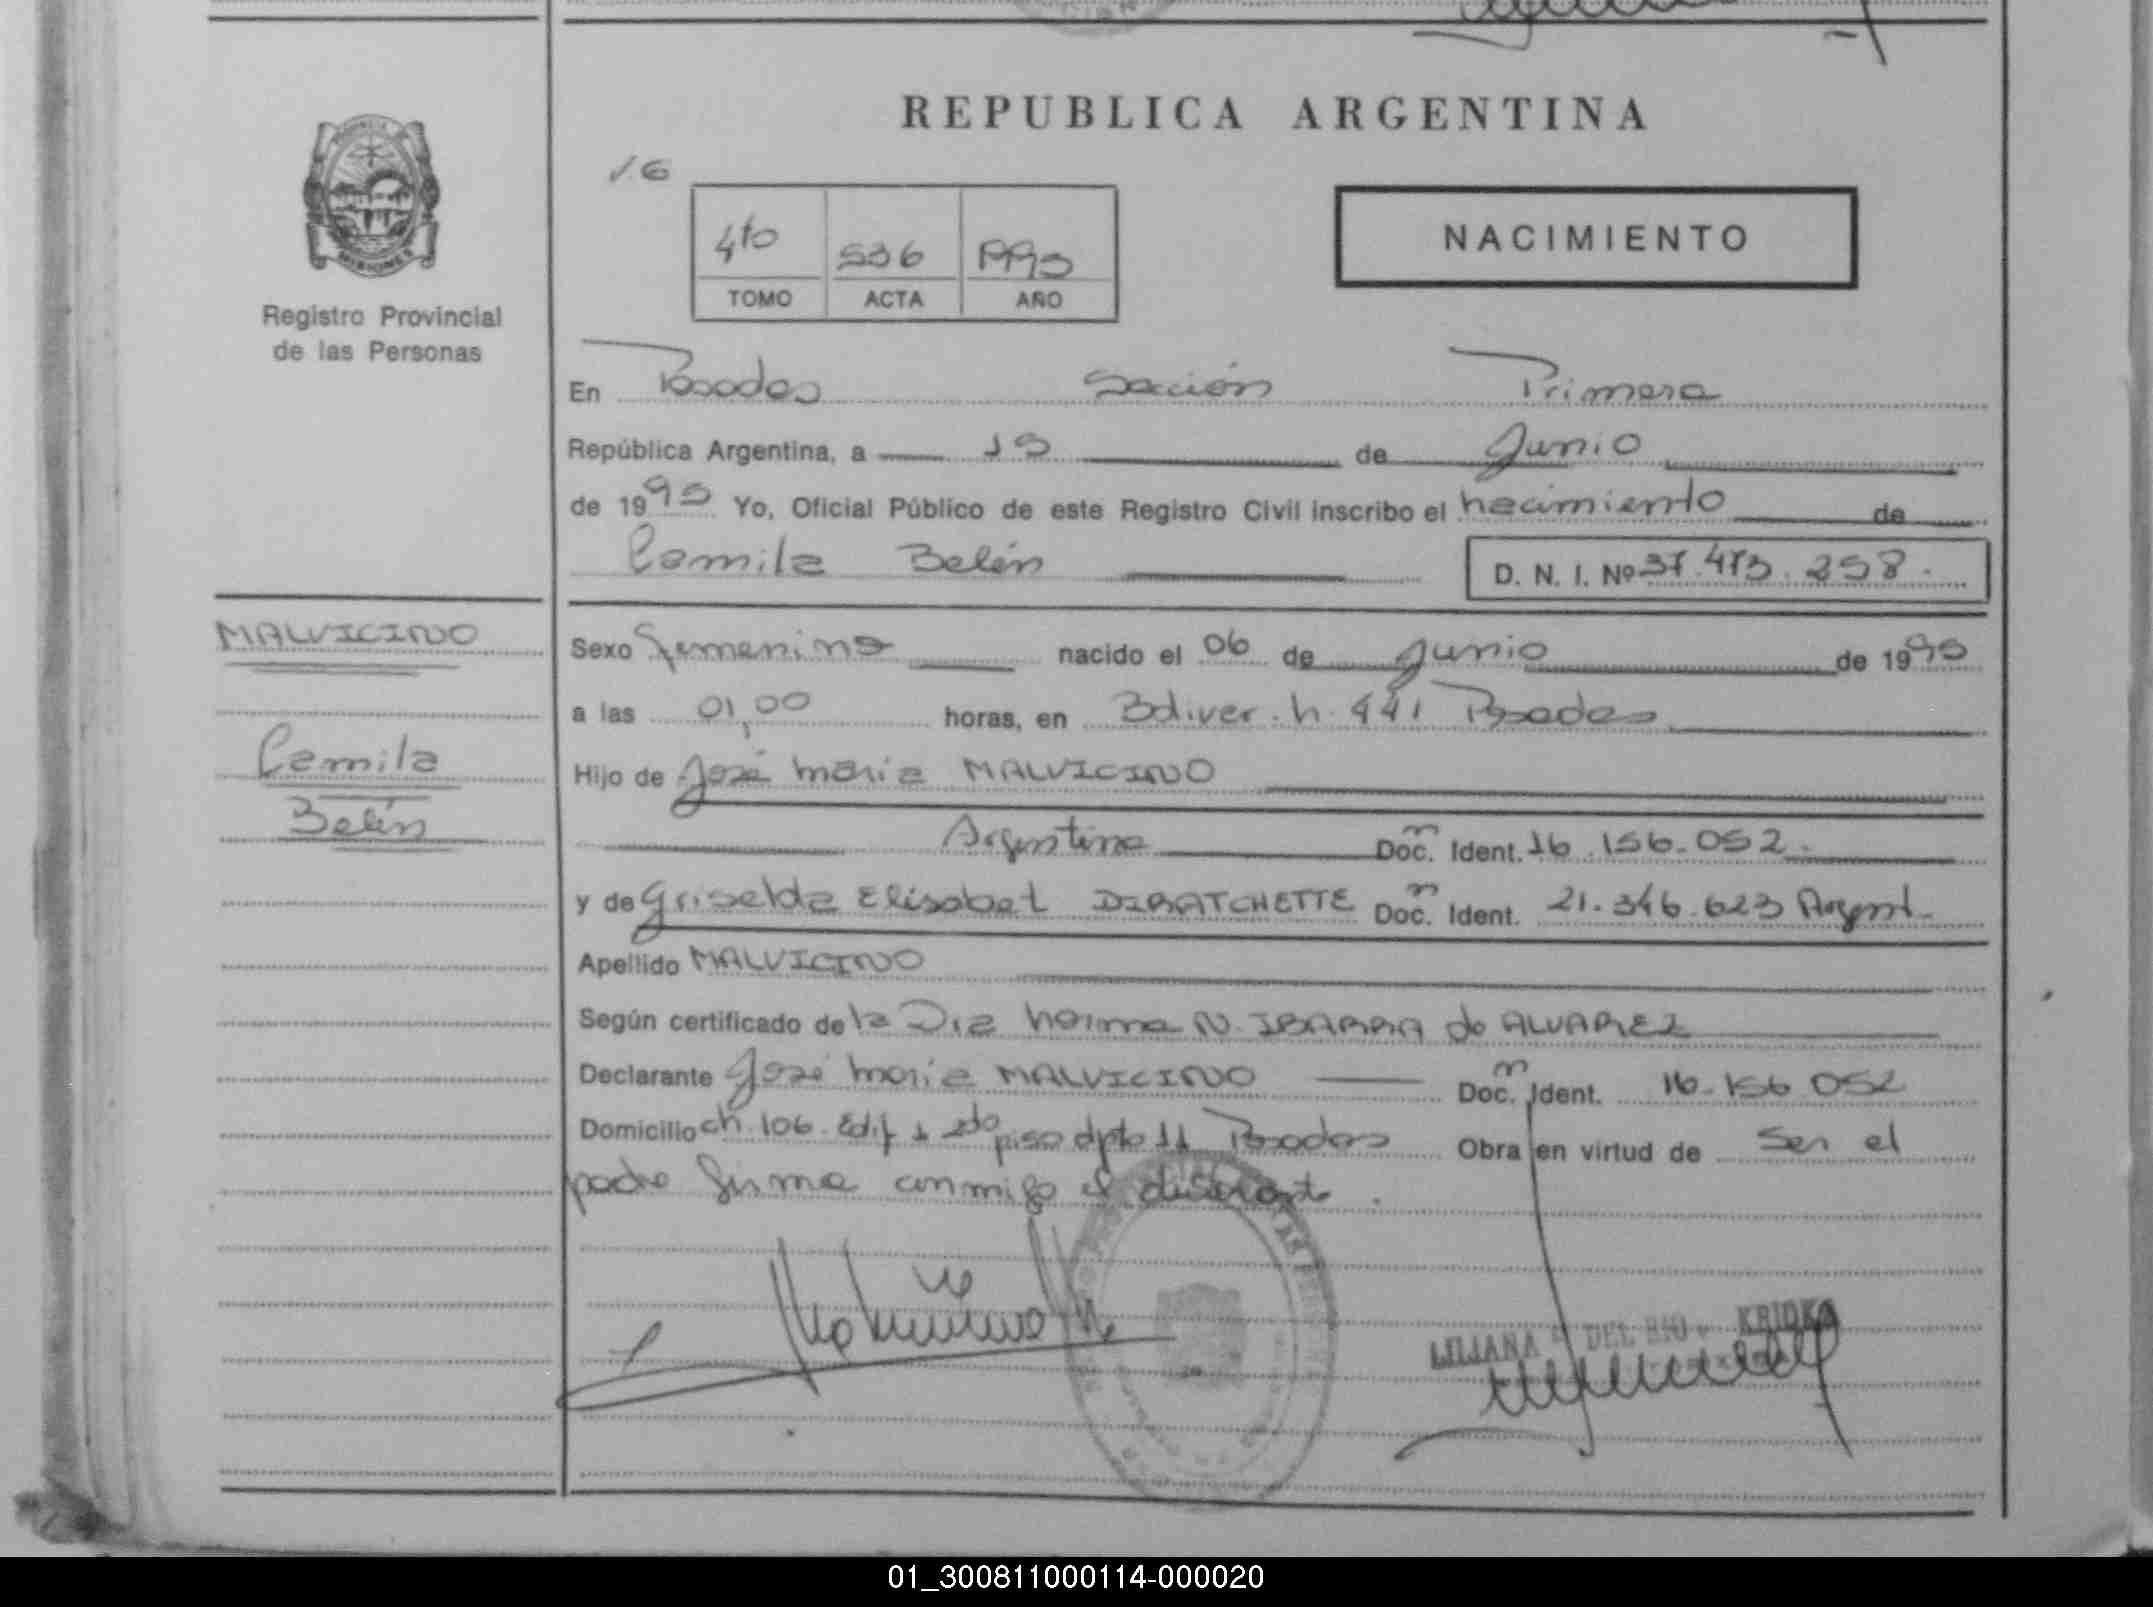 REPUBLICA ARGENTINA
PROVINCIA
MISIONES
Registro Provincial
de las Personas
4to 536
TOMO ACTA AÑO
NACIMIENTO
En Posadas Sección Primera
República Argentina, a de Junio
de 19 Yo, Oficial Público de este Registro Civil inscribo el nacimiento de
Camila Belén
D. N. I. Nº
MALVICINO
Camila
Belén
Sexo Femenino nacido el 06 de Junio de 19
a las 01,00 horas, en Bolivar 441 Posadas
Hijo de José María MALVICINO
Argentino Doc. Ident. 16.156.052.
y de Griselda Elisabet DIRATCHETTE Doc. Ident. 21.346.623 Argent.
Apellido MALVICINO
Según certificado de la Dra Norma N. IBARRA de ALVAREZ
Declarante José María MALVICINO Doc. Ident. 16.156.052
Domicilio ch. 106. Edif 1 2do piso dpto 11 Posadas Obra en virtud de Ser el
padre firma conmigo el declarante.
LILIANA DEL KRIDKO
01_300811000114-000020